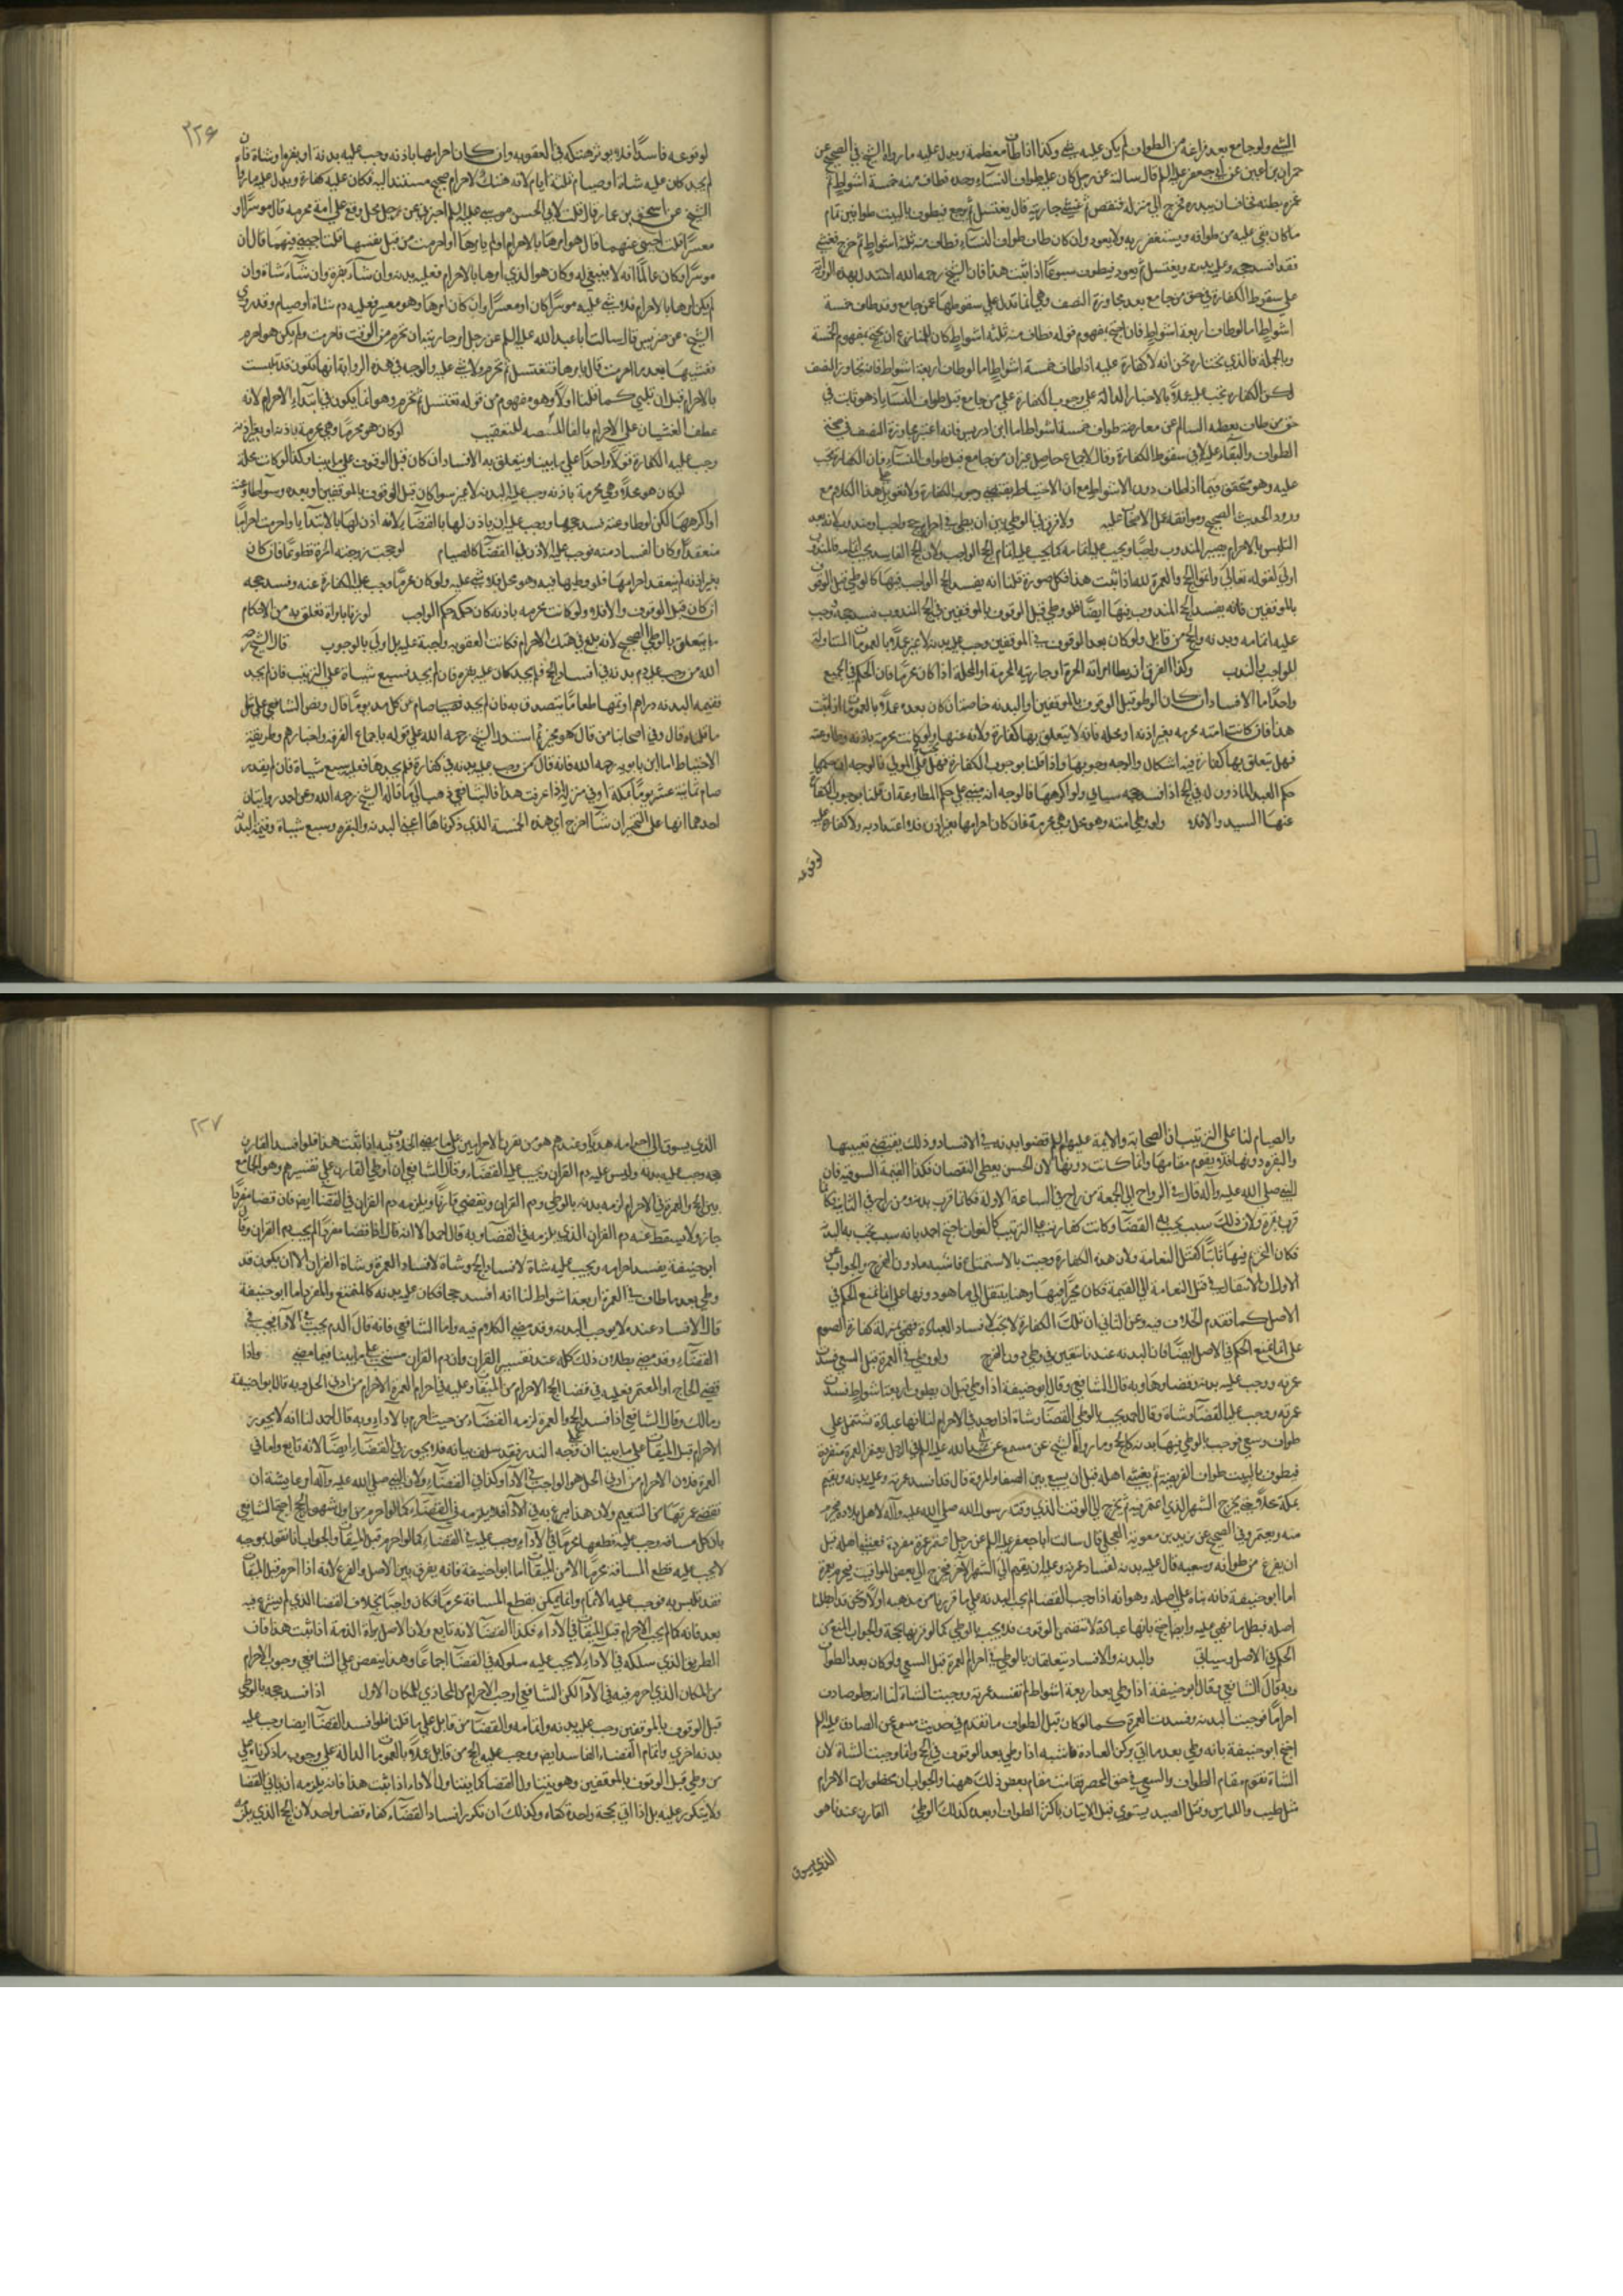 الشيخ ولو جامع بعد فراغه من الطواف لم يكن عليه شيء وكذا اذا طاف معظمه ويدل عليه ما رواه الشيخ في الصحيح عن
حمران بن اعين عن ابي جعفر عليه السلم قال سالته عن رجل كان عليه طواف النساء وحده فطاف منه خمسة اشواط ثم
غمزه بطنه فخاف ان يبدره فخرج الى منزله فنقض ثم غشي جاريته قال يغتسل ثم يرجع فيطوف بالبيت طوافين تمام
ما كان بقي عليه من طوافه ويستغفر ربه ولا يعود وان كان طاف طواف النساء فطاف منه ثلثة اشواط ثم خرج فغشي
فقد افسد حجه وعليه بدنه ويغتسل ثم يعود فيطوف سبوعا اذا ثبت هذا فان الشيخ رحمه الله استدل بهذه الرواية
على سقوط الكفارة في حق من جامع بعد مجاوزة النصف وهي انما تدل على سقوطها عمن جامع وقد طاف خمسة
اشواط اما لو طاف اربعة اشواط فان احتج بمفهوم قوله فطاف منه ثلثة اشواط كان للمنازع ان يحتج بمفهوم الخمسة
وبالجملة فالذي نختاره نحن انه لا كفارة عليه اذا طاف خمسة اشواط اما لو طاف اربعة اشواط فانه تجاوز النصف
لكن الكفارة تجب عليه عملا بالاخبار الدالة على وجوب الكفارة على من جامع قبل طواف النساء اذ هو ثابت في
حق من طاف بعضه السالم عن معارضة طواف خمسة اشواط اما ابن ادريس فانه اعتبر مجاوزة النصف في صحة
الطواف والبناء عليه لا في سقوط الكفارة وقال الاجماع حاصل على ان من جامع قبل طواف النساء فان الكفارة تجب
عليه وهو متحقق فيما اذا طاف دون الاشواط مع ان الاحتياط يقتضي وجوب الكفارة ولا تعويل على هذا الكلام مع
ورود الحديث الصحيح وموافقة عمل الاصحاب عليه ولا فرق في الوطي بين ان يطي في احرام حج واجب او مندوب لانه بعد
التلبس بالاحرام يصير المندوب واجبا ويجب عليه اتمامه كما يجب عليه اتمام الحج الواجب ولان الحج الفاسد يجب اتمامه فالمندوب
اولى لقوله تعالى واتموا الحج والعمرة لله اذا ثبت هذا فكل صورة قلنا انه يفسد الحج الواجب فيها كالوطي قبل الوقوف
بالموقفين فانه يفسد الحج المندوب فيها ايضا فلو وطي قبل الوقوف بالموقفين في الحج المندوب فسد حجه ووجب
عليه اتمامه وبدنه والحج من قابل ولو كان بعد الوقوف في الموقفين وجب عليه بدنة لا غير عملا بالعمومات المتناولة
للواجب والندب وكذا لا فرق ان يطا امراته الحرة او جاريته المحرمة او المحلة اذا كان محرما فان الحكم في الجميع
واحد اما الافساد ان كان الوطي قبل الوقوف بالموقفين او البدنه خاصة ان كان بعده عملا بالعمومات اذا ثبت
هذا فان كانت امته محرمه بغير اذنه او محله فانه لا يتعلق بها كفارة ولا نه عنها ولو كانت محرمة باذنه وطاوعته
فهل يتعلق بها كفارة فيه اشكال والوجه وجوبها واذا قلنا بوجوب الكفارة فهل يجب على المولى فالوجه ان حكمها
حكم العبد الماذون له في الحج اذا افسد حجه سياتي ولو اكرهها فالوجه انه مبني على حكم المطاوعة ان قلنا بوجوب الكفارة
عنها السيد والا فلا ولو وطي امته وهو محل وهي محرمة فان كان احرامها بغير اذن فلا اعتداد به ولا كفارة عليه
لوقوعه
٢٢٦
لوقوعه فاسدا فلا يؤثر هتكه في العقوبة وان كان احرامها باذنه وجب عليه بدنة او بقرة او شاة فان
لم يجد كان عليه شاة او صيام ثلثة ايام لانه هتك لاحرام صحيح مستند اليه فكان عليه كفارة ويدل عليه ما رواه
الشيخ عن اسحق بن عمار قال قلت لابي الحسن موسى عليه السلم اخبرني عن رجل محل وقع على امة محرمه قال موسرا او
معسرا قلت اجبني عنهما قال هو امرها بالاحرام او لم يامرها او احرمت من قبل نفسها قلت اجبني فيهما قال ان
موسرا وكان عالما انه لا ينبغي له وكان هو الذي امرها بالاحرام فعليه بدنه وان شاء بقرة وان شاء شاة وان
لم يكن امرها بالاحرام فلا شي عليه موسرا كان او معسرا وان كان امرها وهو معسر فعليه دم شاة او صيام وقد روى
الشيخ عن ضريس قال سالت ابا عبد الله عليه السلم عن رجل امر جاريته ان تحرم من الوقت فاحرمت ولم يكن هو احرم
فغشيها بعد ما احرمت قال يامرها فتغتسل ثم تحرم ولا شي عليه والوجه في هذه الرواية انها تكون قد تلبست
بالاحرام قبل ان تلبي كما قلنا اولا وهو مفهوم من قوله تغتسل ثم تحرم وهو انما يكون في ابتداء الاحرام لانه
عطف الغشيان على الاحرام بالفا المقتضيه للتعقيب لو كان هو محرما وهي محرمة باذنه او بغير اذنه
وجب عليه الكفارة قولا واحدا على ما بينا ويتعلق به الافساد ان كان قبل الوقوف على ما بينا وكذا لو كانت محلة
لو كان هو محلا وهي محرمة باذنه وجب عليه البدنه لا غير سوا كان قبل الوقوف بالموقفين او بعده وسوا طاوعته
او اكرهها لكن لو طاوعته فسد حجها ووجب عليه ان ياذن لها بالقضاء لانه اذن لها بالابتدا واحرمت احراما
منعقدا وكان الفساد منه فوجب عليه الاذن في القضا كالصيام لو حجت زوجته الحرة تطوعا فان كان
بغير اذنه لم ينعقد احرامها فلو وطيها فيه وهو محل فلا شي عليه ولو كان محرما وجب عليه الكفارة عنه وفسد حجه
ان كان قبل الوقوف والا فلا ولو كانت محرمه باذنه كان حكمه حكم الواجب لو زنا بامراة تعلق به من الاحكام
ما يتعلق بالوطي الصحيح لانه ابلغ في هتك الاحرام فكانت العقوبه واجبة عليه بل اولى بالوجوب قال الشيخ رحمه
الله من وجب عليه دم بدنه في افساد الحج فلم يجد كان عليه بقرة فان لم يجد فسبع شياة على الترتيب فان لم يجد
فقيمة البدنه دراهم او ثمنها طعاما يتصدق به فان لم يجد صام عن كل مد يوما قال ونص الشافعي على مثل
ما قلناه قال وفي اصحابنا من قال هو مخير ثم استدل الشيخ رحمه الله على قوله باجماع الفرقة واخبارهم وطريقة
الاحتياط اما ابن بابويه رحمه الله فانه قال من وجب عليه بدنه في كفارة فلم يجدها فعليه سبع شياة فان لم يقدر
صام ثمانية عشر يوما بمكة او في منزله اذا عرفت هذا فالشافعي ذهب الى ما قاله الشيخ رحمه الله وعن احمد روايتان
احدهما انها على التخيير ان شاء اخرج اي هذه الخمسة الذي ذكرناها اعني البدنه والبقره وسبع شياة وقيمة البدنة
والصيام لنا على الترتيب ان الصحابة والائمة عليهم السلم قضوا بدنه في الافساد وذلك يقتضي تعيينها
والبقره دونها فلا يقوم مقامها وانما كانت دونها لان الحسن يعطي النقصان فكذا القيمة السوقيه فان
النبي صلى الله عليه وآله قال في الرواح الى الجمعة من راح في الساعة الاولة فكانما قرب بدنه ومن راح في الثانية فكانما
قرب بقرة ولان ذلك سبب يجب به القضا وكانت كفارته على الترتيب كالفوات احتج احمد بانه سبب تجب به البدنه
فكان التخيير فيها ثابتا كقتل النعامة ولان هذه الكفارة وجبت بالاستمتاع فاشبه ما دون الفرج والجواب عن
الاول ان الانتقال في قتل النعامة الى القيمة فكان مخيرا فيها وهنا ينتقل الى ما هو دونها على انا نمنع الحكم في
الاصل كما تقدم الخلاف فيه وعن الثاني ان تلك الكفارة لا تجب لافساد العبادة فهي بمنزلة كفارة الصوم
على انا نمنع الحكم في الاصل ايضا فان البدنه عندنا تتعين في وطي دون الفرج ولو وطي في العمرة قبل السعي فسدت
عمرته ووجب عليه بدنه وقضاوها وبه قال الشافعي وقال ابو حنيفة اذا وطي قبل ان يطوف اربعة اشواط فسدت
عمرته ووجب عليه القضا وشاة وقال احمد يجب بالوطي القضا وشاة اذا وجد في الاحرام لنا انها عبادة تشتمل على
طواف وسعي فوجب بالوطي فيها بدنه كالحج وما رواه الشيخ عن مسمع عن ابي عبد الله عليه السلم في الرجل يعتمر العمرة مفردة
فيطوف بالبيت طواف الفريضة ثم يغشى اهله قبل ان يسعى بين الصفا والمروة قال قد افسد عمرته وعليه بدنه ويقيم
بمكة محلا حتى يخرج الشهر الذي اعتمر فيه ثم يخرج الى الوقت الذي وقته رسول الله صلى الله عليه وآله لاهل بلاده فيحرم
منه ويعتمر وفي الصحيح عن بريد بن معوية العجلي قال سالت ابا جعفر عليه السلم عن رجل اعتمر عمرة مفردة فغشي اهله قبل
ان يفرغ من طوافه وسعيه قال عليه بدنه لفساد عمرته وعليه ان يقيم الى الشهر الآخر فيخرج الى بعض المواقيت فيحرم بعمرة
اما ابو حنيفة فانه بناه على اصله وهو انه اذا وجب القضا لم يجب البدنه على ما قررناه من مذهبه اولا ونحن قد ابطلنا
اصله فبطل ما بني عليه وايضا احتج بانها عبادة لا تتضمن الوقوف فلا يجب بالوطي كما لو قرنها بحجة والجواب المنع من
الحكم في الاصل وسياتي والبدنه والافساد يتعلقان بالوطي في احرام العمرة قبل السعي ولو كان بعد الطواف
وبه قال الشافعي وقال ابو حنيفة اذا وطي بعد اربعة اشواط لم تفسد عمرته ووجبت الشاة لنا انه وطي صادف
احراما فوجبت البدنه وفسدت العمرة كما لو كان قبل الطواف ما تقدم في حديث مسمع عن الصادق عليه السلم
احتج ابو حنيفة بانه وطي بعد ما اتى بركن العبادة فاشبه اذا وطي بعد الوقوف في الحج وانما وجبت الشاة لان
الشاة تقوم مقام الطواف والسعي في حق المحصر فقامت مقام بعض ذلك ههنا والجواب ان محظورات الاحرام
مثل طيب واللباس وقتل الصيد يستوي قبل الاتيان باكثر الطواف وبعده كذلك الوطي القارن عندنا هو
الذي يسوق
٢٢٧
الذي يسوق الى احرامه هديا وعندهم هو من يقرن الاحرامين على ما مضى الخلاف فيه اذا ثبت هذا فلو افسد القارن
حجه وجب عليه بدنه وليس عليه دم القران ويجب عليه القضاء وقال الشافعي ان وطي القارن على تفسيرهم وهو الجامع
بين الحج والعمرة في الاحرام لزمه بدنه بالوطي ودم القران ويقضي قارنا ويلزمه دم القران في القضا ايضا فان قضا مفردا
جاز ولا يسقط عنه دم القران الذي يلزمه في القضا وبه قال احمد الا انه قال اذا قضا مفردا لم يجب دم القران وقال
ابو حنيفة يفسد احرامه ويجب عليه شاة لافساد الحج وشاة لافساد العمرة وشاة القران الا ان يكون قد
وطي بعد ما طاف في العمرة اربعة اشواط لنا انه افسد حجا فكان عليه بدنه كالمتمتع والمفرد اما ابو حنيفة
قال الافساد عنده لا يوجب البدنه وقد مضى الكلام فيه واما الشافعي فانه قال الدم يجب في الاداء فيجب في
القضاء وقد مضى بطلان ذلك كله عند تفسير القران وان دم القران مستحب على ما بينا فيما مضى واذا
قضى الحاج او المعتمر فعليه في قضا الحج الاحرام من الميقات وعليه في احرام العمرة الاحرام من ادنى الحل وبه قال ابو حنيفة
ومالك وقال الشافعي اذا افسد الحج والعمرة لزمه القضاء من حيث احرم بالاداء وبه قال احمد لنا انه لا يجوز
الاحرام قبل الميقات على ما بينا ان حجه النذر فقد سلف بيانه فلا يجوز في القضاء ايضا لانه تابع واما في
العمرة فلان الاحرام من ادنى الحل هو الواجب في الاداء وكذا في القضاء ولان النبي صلى الله عليه وآله امر عايشة ان
تقضي عمرتها من التنعيم ولان هذا تبرع به في الاداء فلا يلزمه في القضاء كما لو احرم من اول شهور الحج احتج الشافعي
بان كل مسافه وجب عليه قطعها محرما في الاداء وجب عليه في القضاء كما لو احرم قبل الميقات والجواب انا نقول بموجبه
لا يجب عليه قطع المسافة محرما الا من الميقات اما ابو حنيفة فانه يفرق بين الاصل والفرع لانه اذا احرم قبل الميقات
فقد تلبس به فوجب عليه الاتمام وانما يمكن بقطع المسافة محرما فكان واجبا بخلاف القضا الذي لم يشرع فيه
بعد فانه كما لم يجب الاحرام قبل الميقات في الاداء فكذا القضا لانه تابع ولان الاصل براة الذمة اذا ثبت هذا فان
الطريق الذي سلكه في الاداء لا يجب عليه سلوكه في القضا اجماعا وهذا ينقض على الشافعي وجوب الاحرام
من المكان الذي احرم فيه في الادا لكن الشافعي اوجب الاحرام من المحاذي للمكان الاول اذا فسد حجه بالوطي
قبل الوقوف بالموقفين وجب عليه بدنه واتمامه والقضا من قابل على ما قلنا فلو افسد القضا ايضا وجب عليه
بدنه اخرى واتمام القضاء الفاسد ايضا ووجب عليه الحج من قابل عملا بالعمومات الدالة على وجوب ما ذكرناه على
من وطي قبل الوقوف بالموقفين وهو يتناول القضا كما يتناول الاداء اذا ثبت هذا فانه يلزمه ان ياتي بالقضا
ولا يتكرر عليه بل اذا اتى بحجة واحدة كفاه وكذلك ان تكرر افساد القضاء كفاه قضا واحد لان الحج الذي يلزمه